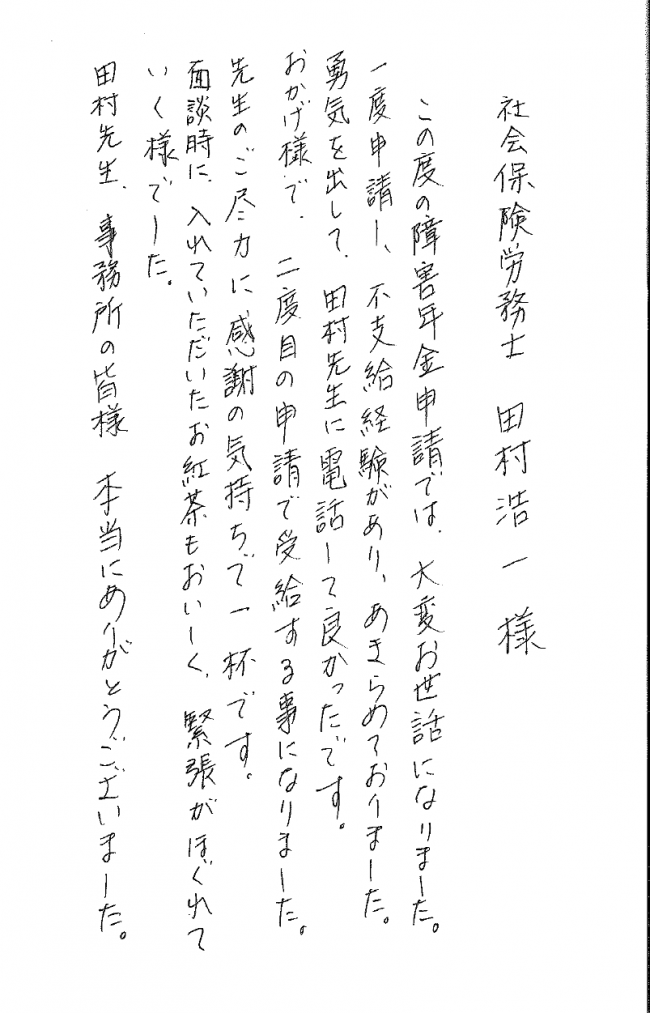 社会保険労務士 田村浩一 様
この度の障害年金申請では、大変お世話になりました。
一度申請し、不支給経験があり、あきらめておりました。
勇気を出して、田村先生に電話して良かったです。
おかげ様で、二度目の申請で受給する事になりました。
先生のご尽力に感謝の気持ちで一杯です。
面談時に、入れていただいたお紅茶もおいしく、緊張がほぐれて
いく様でした。
田村先生、事務所の皆様 本当にありがとうございました。